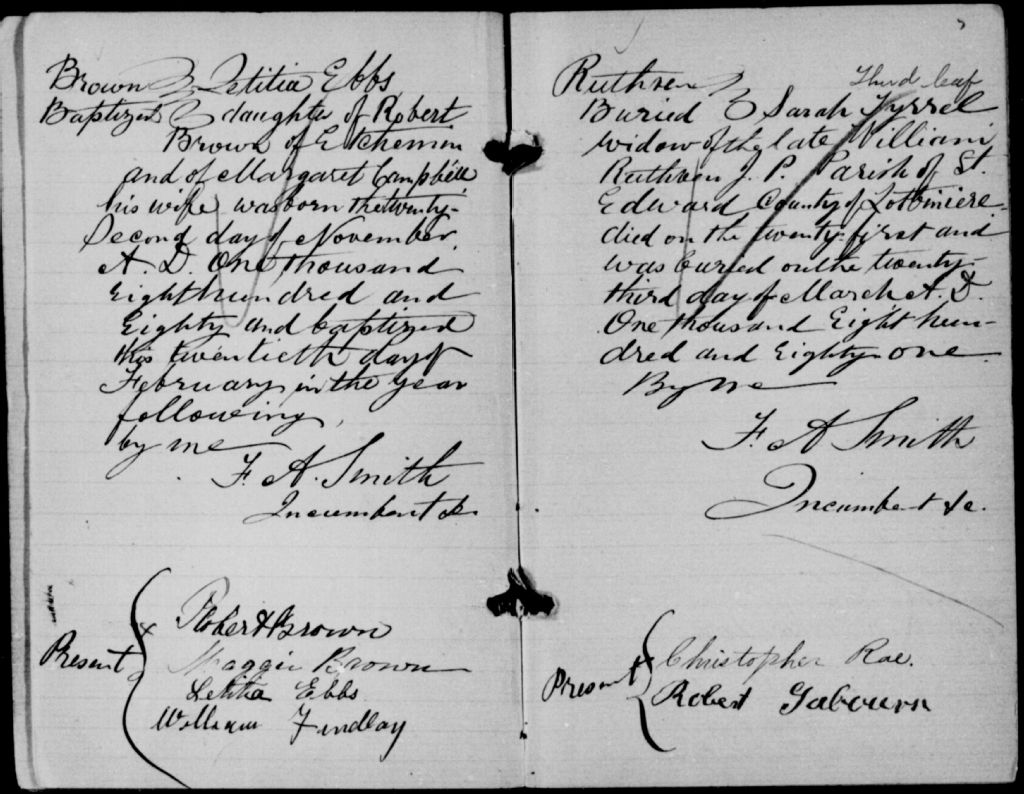 Brown Letitia Ebbs,
Baptized daughter of Robert
Brown of Etchemin
and of Margaret Campbell
his wife was born the twenty-
Second day of November,
A. D. One thousand
Eight hundred and
Eighty and baptized
this twentieth day of
February in the year
following,
by me
F. A. Smith
Incumbent &c.
Present
Robert Brown
Maggie Brown
Letitia Ebbs
William Findlay
Third leaf
Ruthven
Buried Sarah Tyrrel
widow of the late William
Ruthven J. P. Parish of St.
Edward County of Lotbiniere
died on the twenty-first and
was buried on the twenty-
third day of March A. D.
One thousand Eight hun-
dred and Eighty one.
By me
F. A Smith
Incumbent &c.
Present
Christopher Rae.
Robert Gabourn